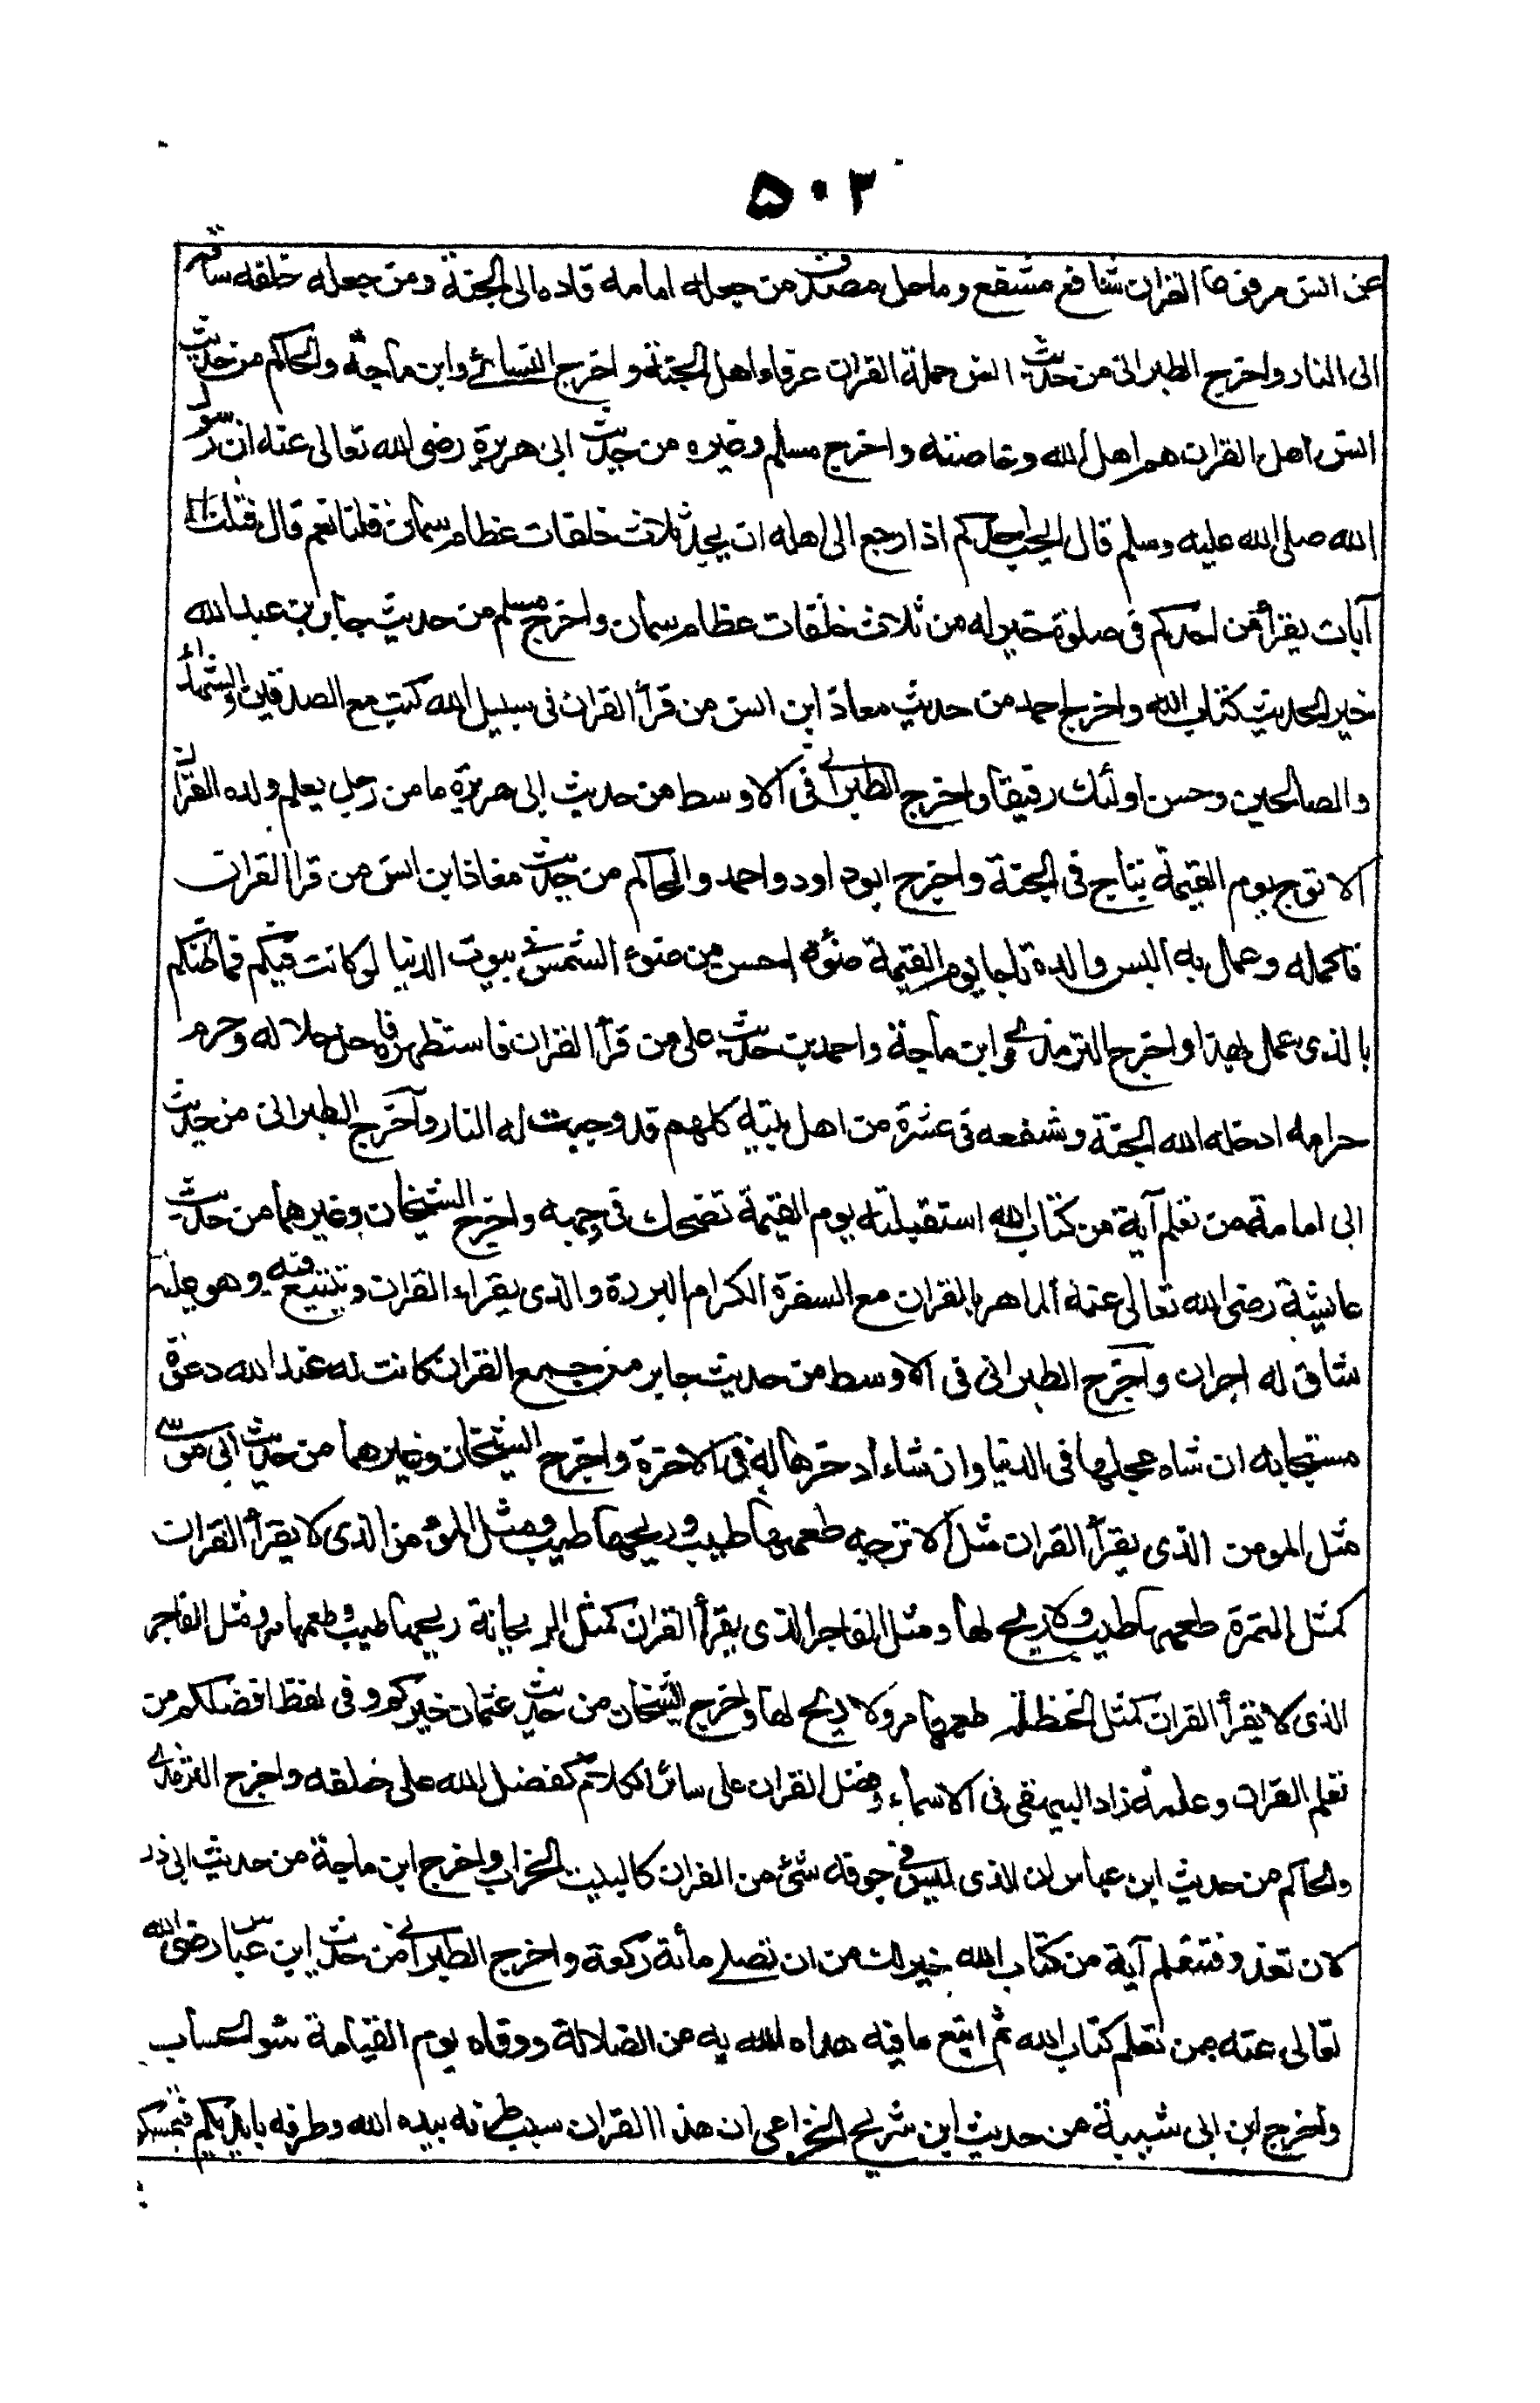 ۵۰۲
عن انس مرفوعا القران شافع مشفع وماحل مصدق من جعله امامه قاده الى الجنة ومن جعله خلفه ساقه
الى النار واخرج الطبرانى من حديث انس حملة القران عرفاء اهل الجنة واخرج النسائے وابن ماجة والحاكم من حديث
انس اهل القران هم اهل الله وخاصته واخرج مسلم وغيره من حديث ابى هريرة رضى الله تعالى عنه ان رسول
الله صلى الله عليه وسلم قال ايحب احدكم اذا رجع الى اهله ان يجد ثلاث خلفات عظام سمان قلنا نعم قال فثلث
آيات يقرأهن احدكم فى صلوة خير له من ثلاث خلفات عظام سمان واخرج مسلم من حديث جابر بن عبد الله
خير الحديث كتاب الله واخرج احمد من حديث معاذ ابن انس من قرأ القران فى سبيل الله كتب مع الصدقين والشهداء
والصالحين وحسن اولئك رفيقا واخرج الطبرانے فى الاوسط من حديث ابى هريرة ما من رجل يعلم ولده القران
الا توج يوم القيمة بتاج فى الجنة واخرج ابوداود واحمد والحاكم من حديث معاذ ابن انس من قرا القران
فاكمله وعمل به البس والده تاجا يوم القيمة ضوءه احسن من ضوء الشمس فى بيوت الدنيا لو كانت فيكم فما ظنكم
بالذى عمل بهذا واخرج الترمذے وابن ماجة واحمد من حديث على من قرأ القران فاستظهره فاحل حلاله وحرم
حرامه ادخله الله الجنة وشفعه فى عشرة من اهل بيته كلهم قد وجبت له النار وآخرج الطبرانى من حديث
ابى امامة من تعلم آية من كتاب الله استقبلته يوم القيمة تضحك فى وجهه واخرج الشيخان وغيرهما من حديث
عايشة رضى الله تعالى عنه الماهر بالقران مع السفرة الكرام البررة والذى يقراء القران ويتتعتع فيه وهو عليه
شاق له اجران وآخرج الطبرانى فى الاوسط من حديث جابر من جمع القران كانت له عند الله دعوة
مستجابه ان شاء عجلها فى الدنيا وان شاء ادخرها له فى الاخرة واخرج الشيخان وغيرهما من حديث ابى موسے
مثل المومن الذى يقرأ القران مثل الاترجه طعمها طيب وريحها طيب ومثل المؤمن الذى لا يقرأ القران
كمثل التمرة طعمها طيب ولا ريح لها ومثل الفاجر الذى يقرأ القران كمثل الريحانة ريحها طيب وطعمها مر ومثل الفاجر
الذى لا يقرأ القران كمثل الحنظلة طعمها مر ولا ريح لها واخرج الشيخان من حديث عثمان خيركم وفى لفظ افضلكم من
تعلم القران وعلمه زاد البيهقى فى الاسماء وفضل القران على سائر الكلام كفضل الله على خلقه واخرج الترمذے
والحاكم من حديث ابن عباس ان الذى ليس فى جوفه شئ من القران كالبيت الخراب واخرج ابن ماجة من حديث ابى ذر
لان تغدو فتتعلم آية من كتاب الله خير لك من ان تصلے مأئة ركعة واخرج الطبرانے من حديث ابن عباس رضى الله
تعالى عنه من تعلم كتاب الله ثم اتبع ما فيه هداه الله به من الضلالة ووقاه يوم القيامة سوء الحساب
واخرج ابن ابى شيبة من حديث ابن شريح الخزاعى ان هذا القران سبب طرفه بيده الله وطرفه بايديكم فتمسكو